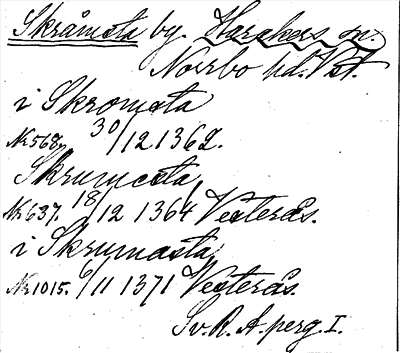 Skråmsta by. Harakers sn.
Norrbo hd. Vstm.
i Skromsta
Nr 568. 30/12 1362.
Skrumesta
Nr 637. 18/12 1364 Vesterås.
i Skrumasta
Nr 1015. 6/11 1371 Vesterås.
Sv. R. A. perg. I.